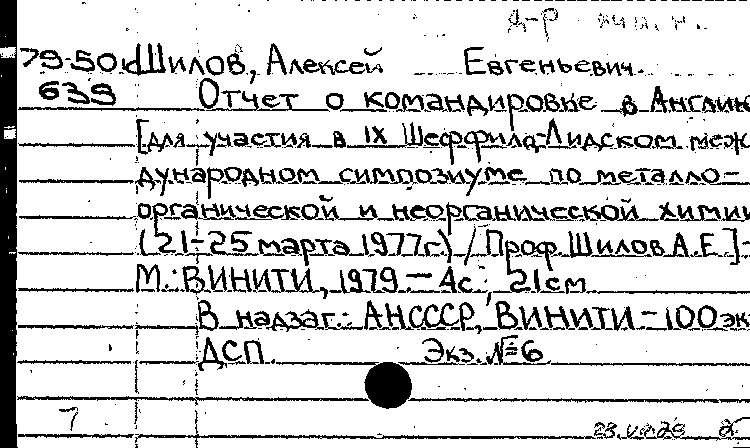 79-50
Шилов, Алексей Евгеньевич.
639 Отчет о командировке в Англию
[для участия в IX Шеффилд-Лидском меж
дународном симпозиуме по металло-
органической и неорганической химии
(21-25 марта 1977г.) / Проф. Шилов А.Е.]-
М.: ВИНИТИ, 1979.- 4с.; 21см
В надзаг.: АНСССР, ВИНИТИ - 100 эк
ДСП. Экз. №6
7